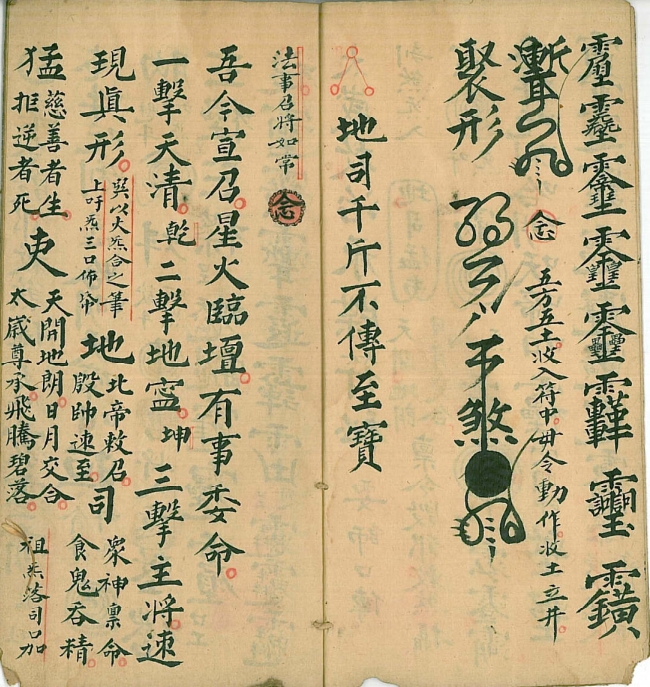 念 五方五土收入符中毋令動作收土立井
聚形 煞
地司千斤不傳至寶
法事召將如常 念
吾令宣召星火臨壇有事委命
一擊天清乾二擊地寧坤三擊主將速
現眞形
巽以火炁合之筆
上吁炁三口佈符
地
北帝敕召
殷帥速至
司
眾神稟命
食鬼吞精
猛
慈善者生
拒逆者死
吏
天開地朗日月交合
太歲尊承飛騰碧落
祖炁落司口加